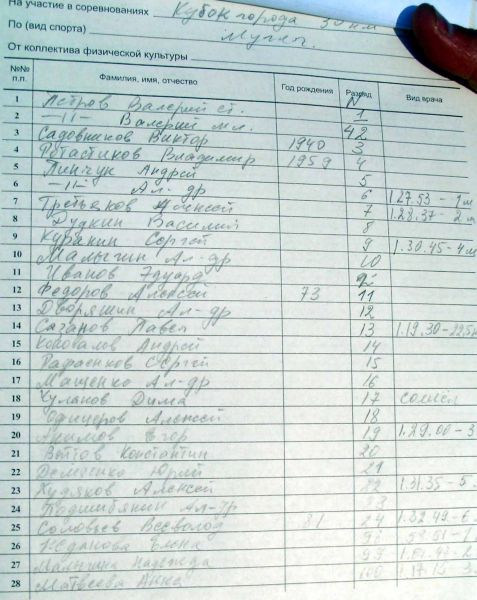 На участие в соревнованиях Кубок города 30 км
По (вид спорта) Мужч.
От коллектива физической культуры
№№ п.п. Фамилия, имя, отчество Год рождения Разряд Вид врача
№
1 Петров Валерий ст. 1
2 —11— Валерий мл. 2
3 Садовников Виктор 1940 3
4 Владимир 1959 4
5 Пинчук Андрей 5
6 —11— Ал-др 6 1.27.53 - 1 м
7 Третьяков Алексей 7 1.28.37 - 2 м
8 Дудкин Василий 8
9 Куранин Сергей 9 1.30.45 - 4 м
10 Малыгин Ал-др 10
11 Иванов Эдуард
12 Федоров Алексей 73 11
13 Дворяшин Ал-др 12
14 Сазанов Павел 13 1.19.30 -
15 Коновалов Андрей 14
16 Сергей 15
17 Мащенко Ал-др 16
18 Чуланов Дима 17 сошёл
19 Офицеров Алексей 18
20 Акимов Егор 19 1.29.00 - 3
21 Константин 20
22 Демченко Юрий 21
23 Худяков Алексей 22 1.31.35 - 5
24 Подшибякин Ал-др
25 Соловьев Всеволод 81 24 1.32.49 - 6
26 Жданова Елена
27 Малыгина Надежда 99
28 Матвеева Анна 100 1.17.15 - 3